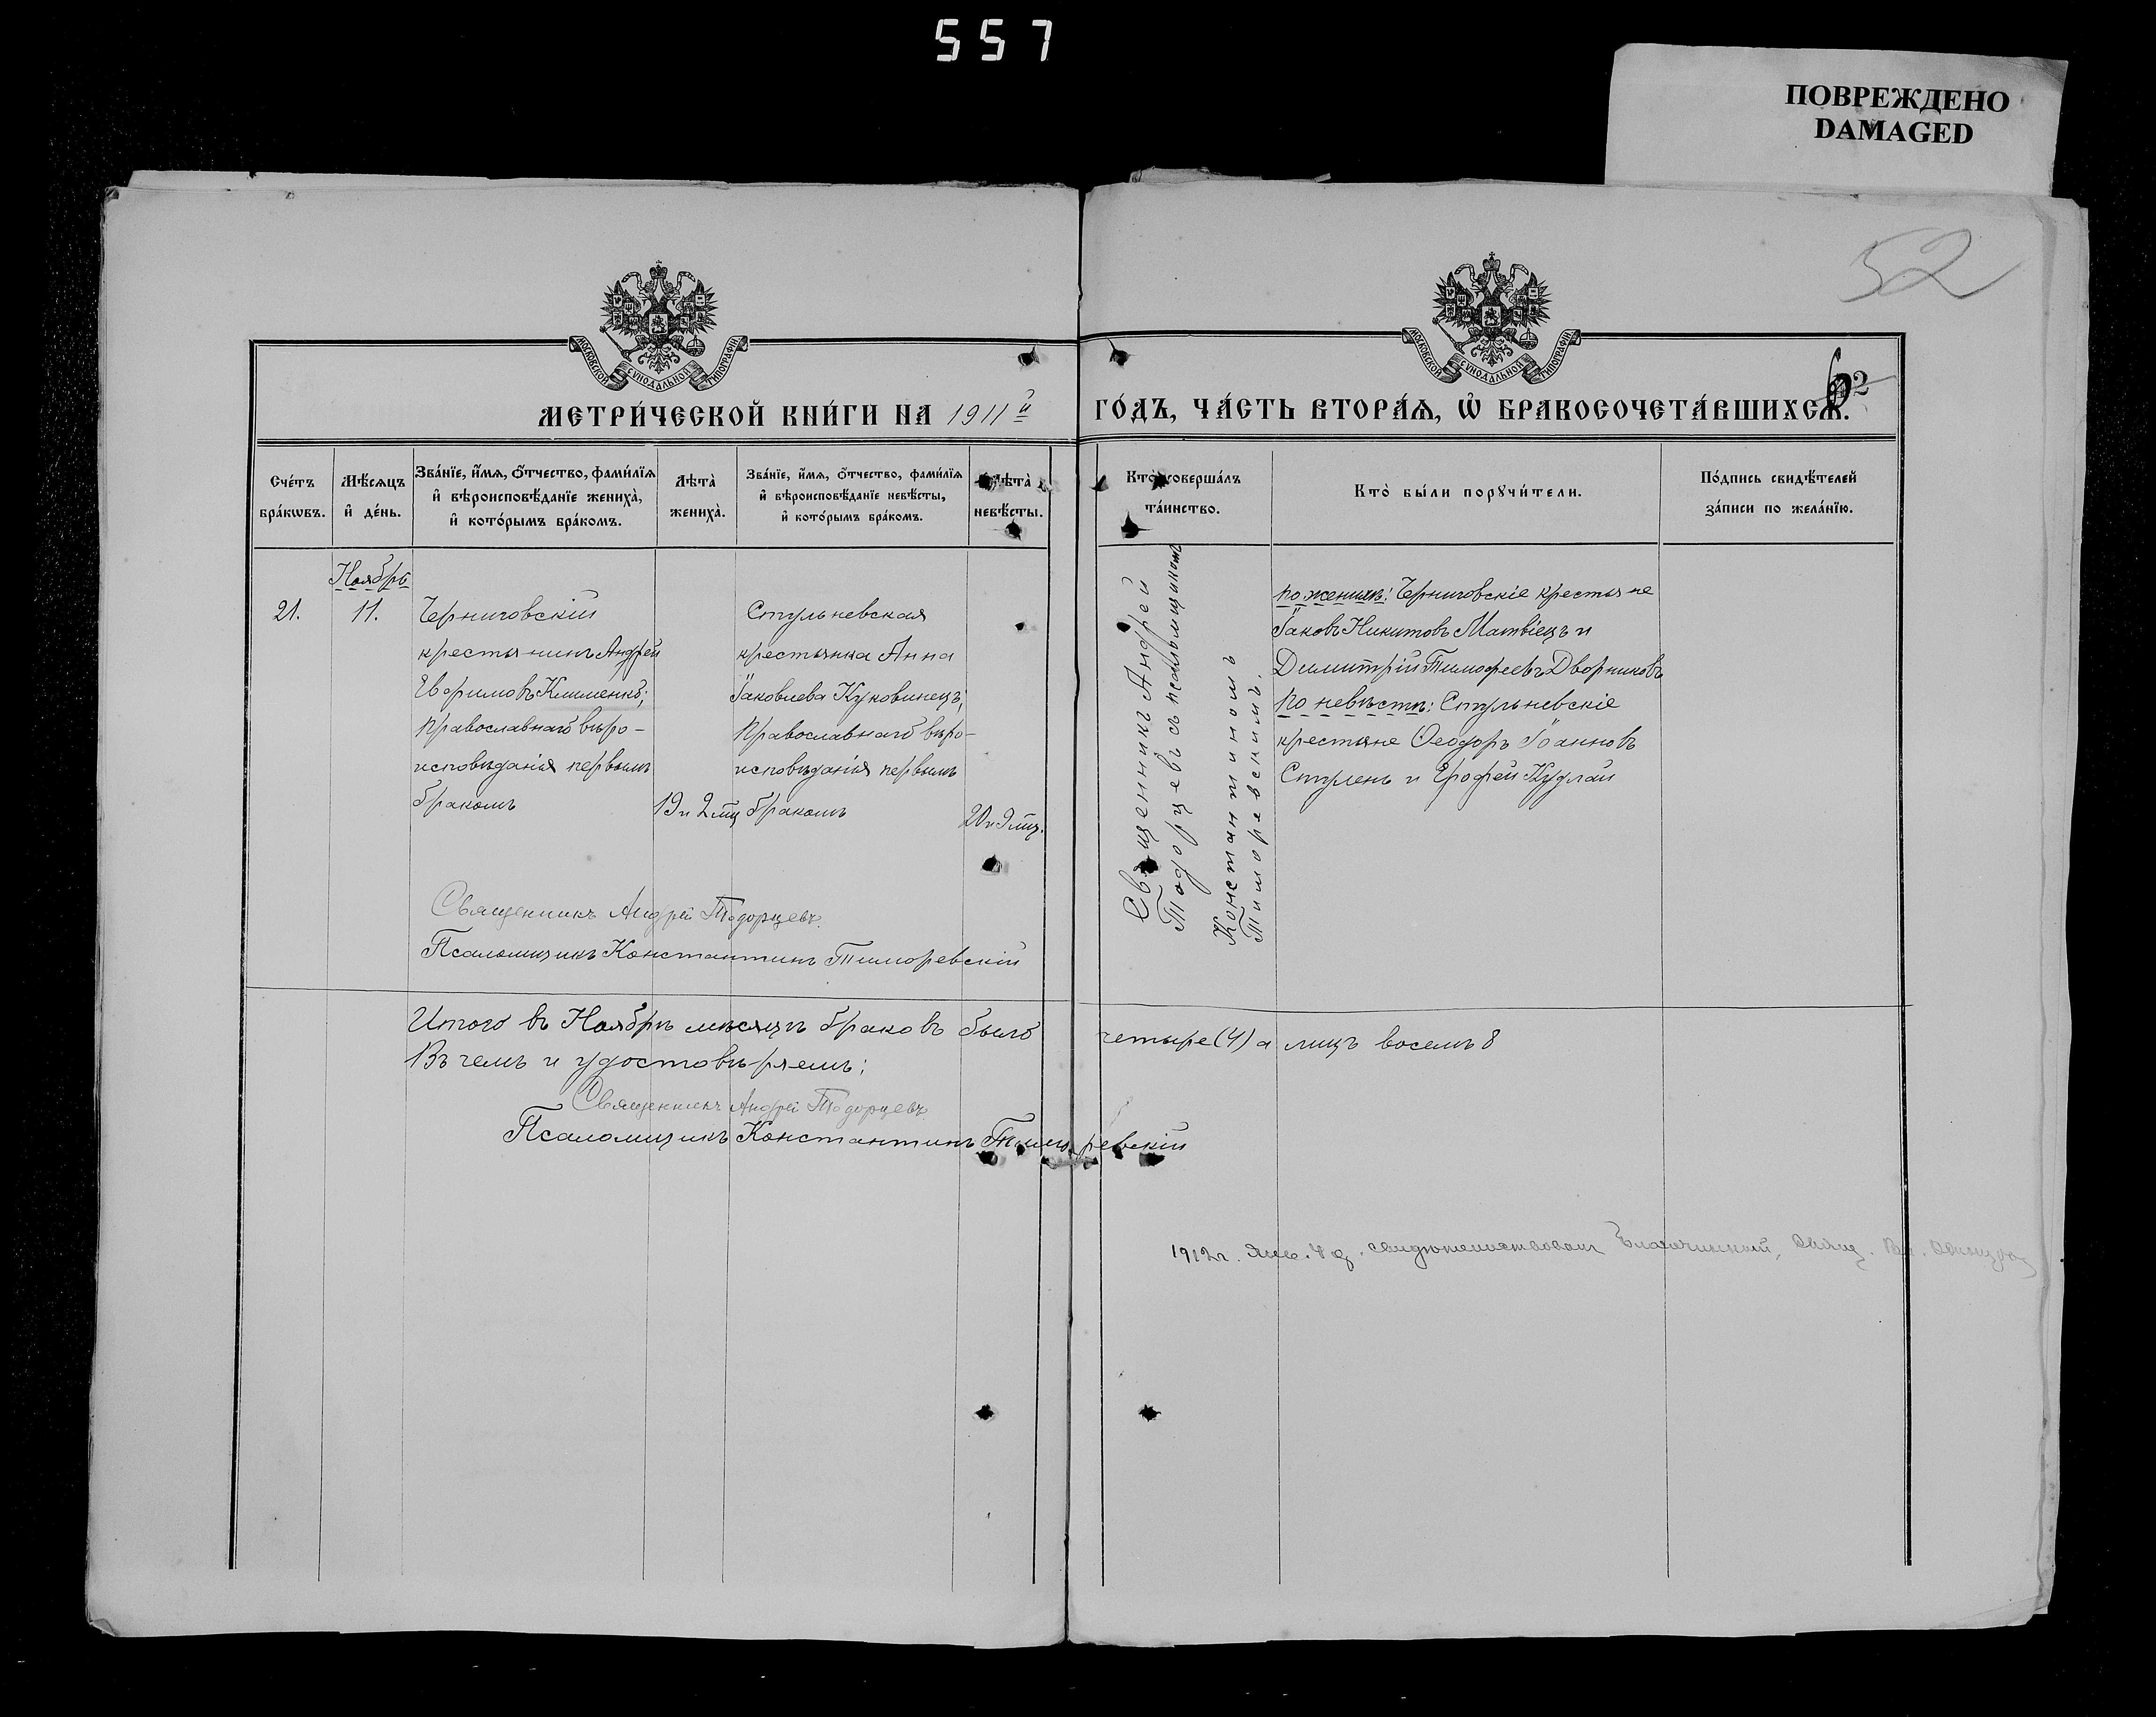 557
ПОВРЕЖДЕНО
DAMAGED
52
МОСКОВСКОЙ СѴНОДАЛЬНОЙ ТИПОГРАФІИ
МОСКОВСКОЙ СѴНОДАЛЬНОЙ ТИПОГРАФІИ
МЕТРИ́ЧЕСКОЙ КНИ́ГИ НА 1911й
ГО́ДЪ, ЧА́СТЬ ВТОРА́Я, Ѡ БРАКОСОЧЕТА́ВШИХСѦ.
Сче́тъ
бра́кѡвъ.
Мѣ́сѧцъ
и́ де́нь.
Зва́нїе, и́мѧ, ѻ́тчество, фами́лїѧ
и́ вѣроисповѣ́данїе жениха̀,
и́ кото́рымъ бра́комъ.
Лѣта̀
жениха̀.
Зва́нїе, и́мѧ, ѻ́тчество, фами́лїѧ
и́ вѣроисповѣ́данїе невѣ́сты,
и́ кото́рымъ бра́комъ.
Лѣта̀
невѣ́сты.
Кто̀ соверша́лъ
та́инство.
Кто̀ бы́ли порꙋчи́тели.
По́дпись свидѣ́телей
за́писи по жела́нїю.
Ноябрь
21.
11.
Черниговскій
крестьянинъ Андрей
Евфимовъ Клименко;
православнаго вѣро-
исповѣданія первымъ
бракомъ
19 и 2 мц
Стульневская
крестьянка Анна
Іаковлева Куковинецъ;
православнаго вѣро-
исповѣданія первымъ
бракомъ
20 и 9 мц.
Священникъ Андрей
Тодорцевъ съ псаломщикомъ
Константиномъ
Тиморевскимъ.
по женихѣ: Черниговскіе крестьяне
Іаковъ Никитовъ Матвіецъ и
Димитрій Тимофеевъ Дворниковъ
по невѣстѣ: Стульневскіе
крестьяне Ѳеодоръ Іоанновъ
Стулень и Ерофей Кудлай
Священникъ Андрей Тодорцевъ.
Псаломщикъ Константинъ Тиморевскій
Итого въ Ноябрѣ мѣсяцѣ браковъ было четыре (4) а лицъ восемь 8
Въ чемъ и удостовѣряемъ:
Священникъ Андрей Тодорцевъ
Псаломщикъ Константинъ Тиморевскій
1912 г. Янв. 4 д. свидѣтельствовалъ Благочинный, Свящ.